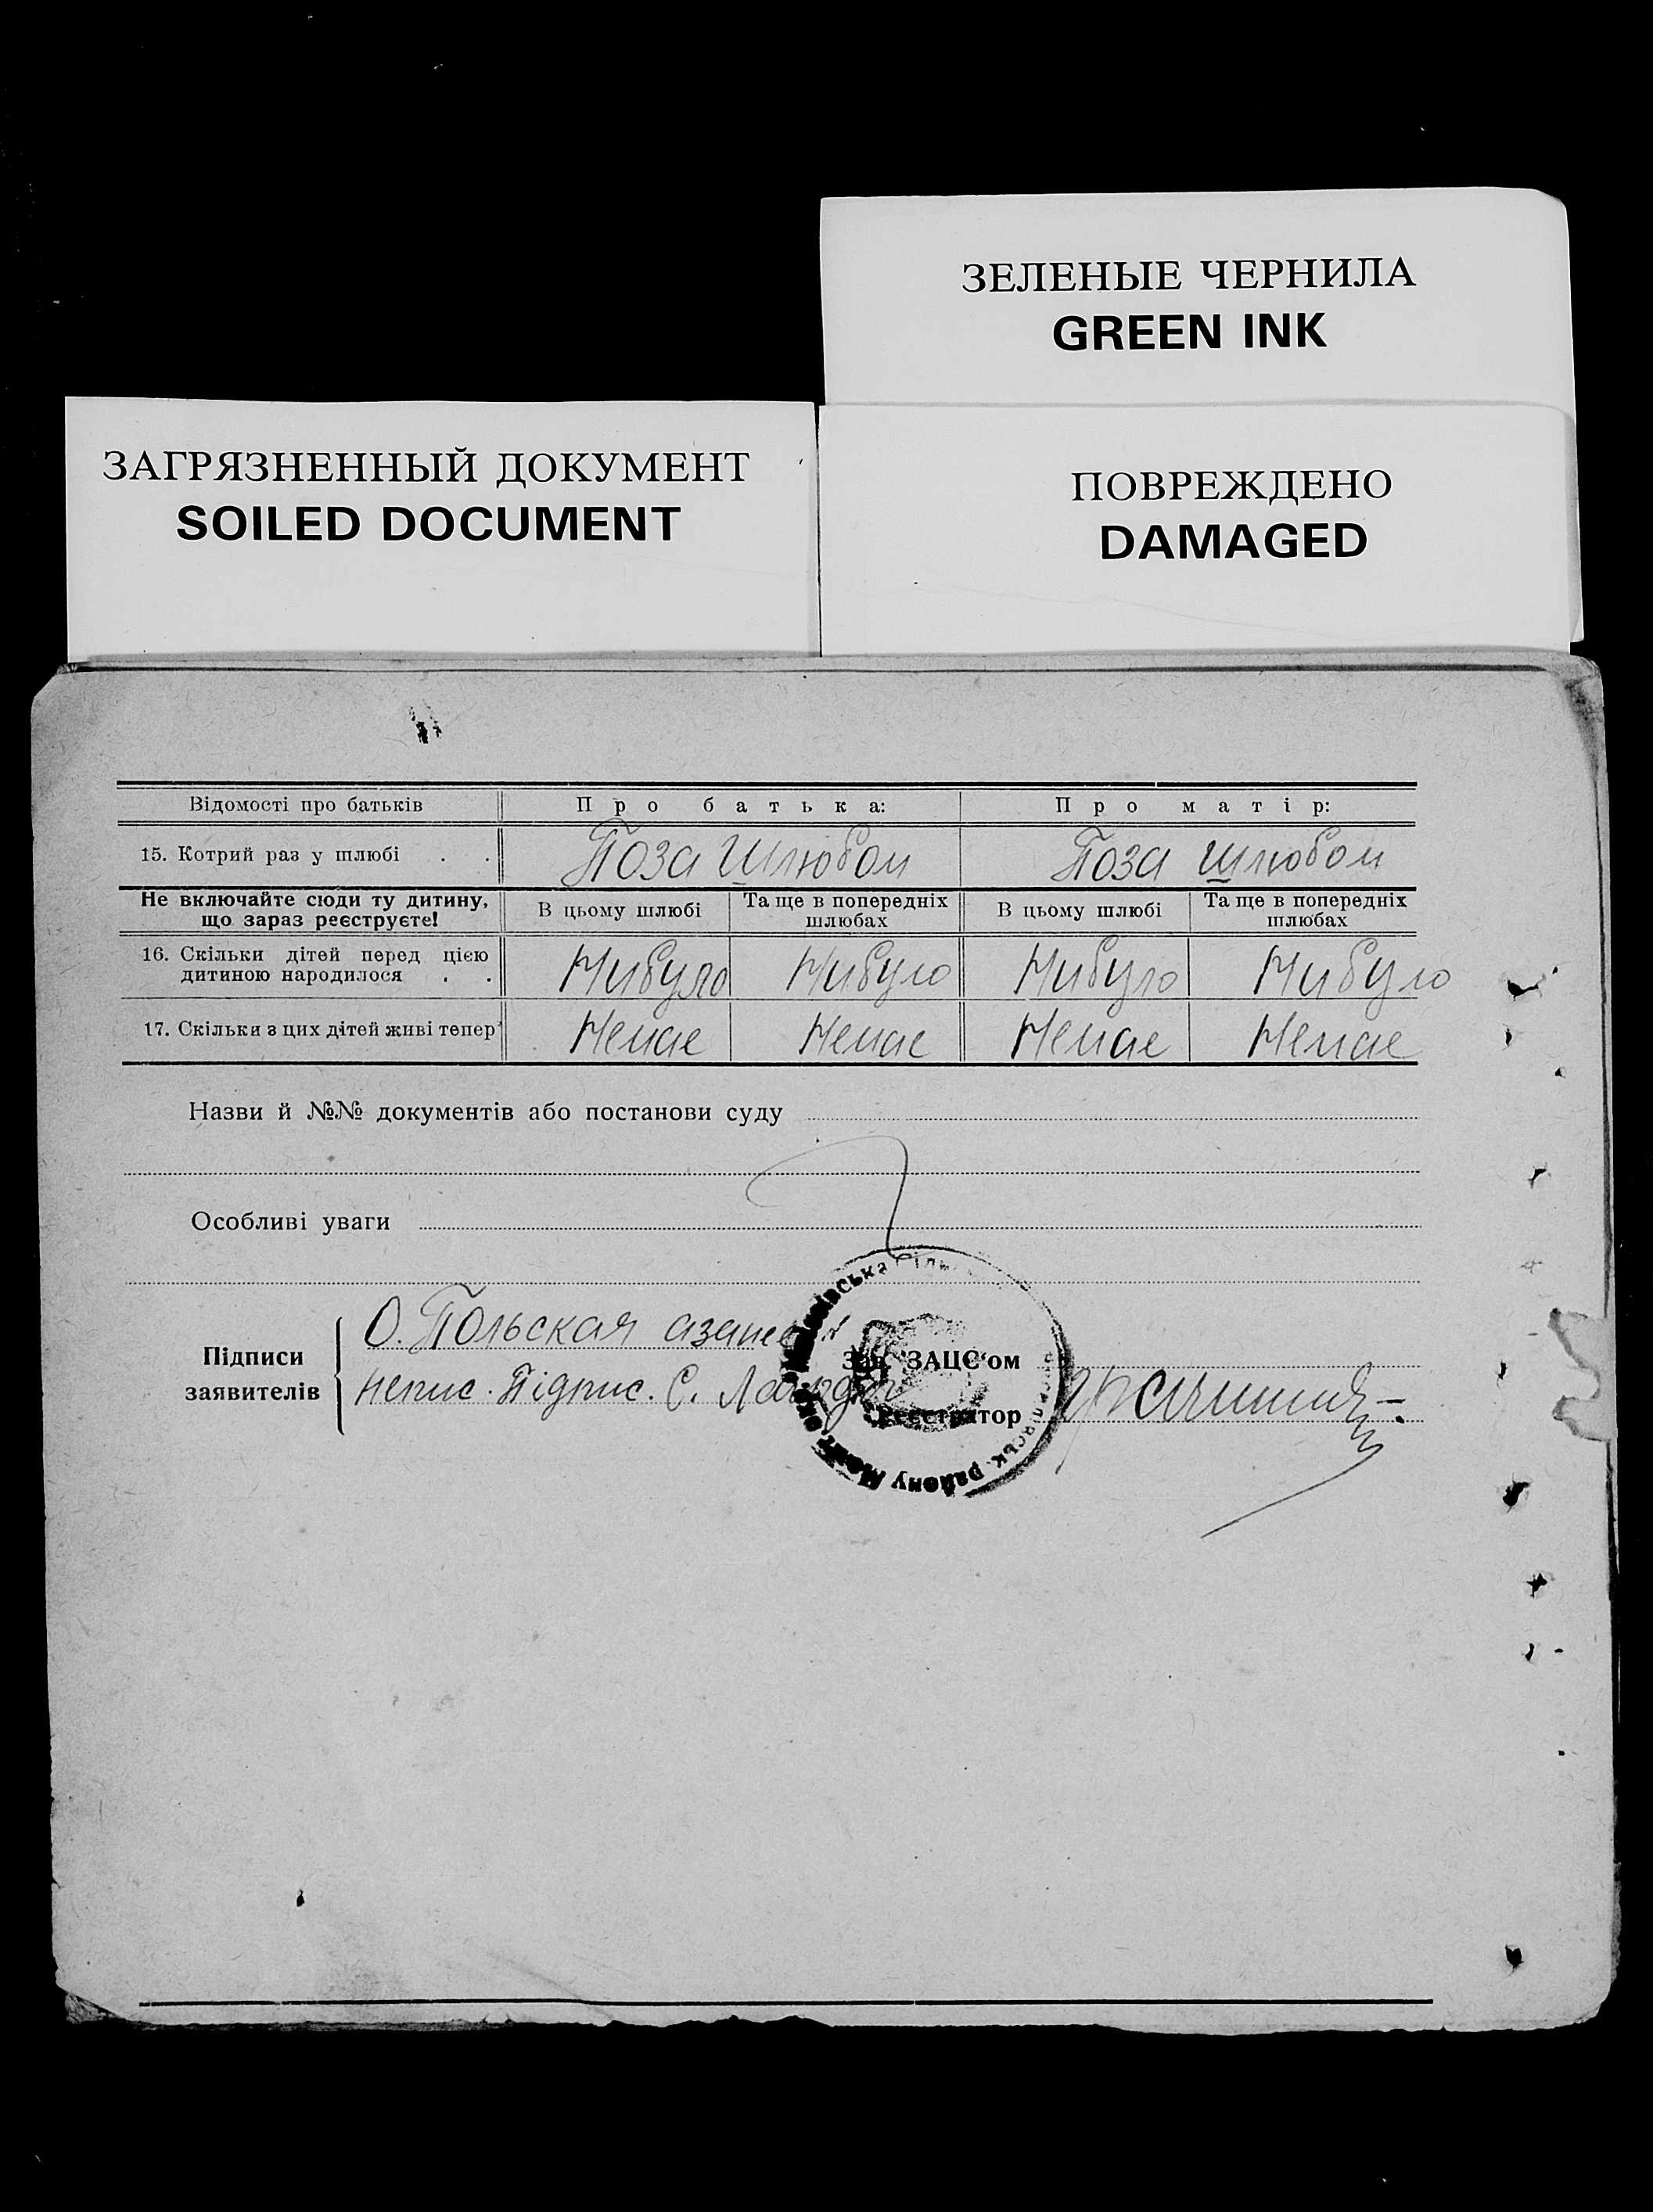 ЗЕЛЕНЫЕ ЧЕРНИЛА
GREEN INK
ЗАГРЯЗНЕННЫЙ ДОКУМЕНТ
SOILED DOCUMENT
ПОВРЕЖДЕНО
DAMAGED
Відомості про батьків Про батька: Про матір:
15. Котрий раз у шлюбі . . Поза Шлюбом Поза шлюбом
Не включайте сюди ту дитину, що зараз реєструєте! В цьому шлюбі Та ще в попередніх шлюбах В цьому шлюбі Та ще в попередніх шлюбах
16. Скільки дітей перед цією дитиною народилося . . Нибуло Нибуло Нибуло Нибуло
17. Скільки з цих дітей живі тепер Немає Немає Немає Немає
Назви й №№ документів або постанови суду
Особливі уваги
Підписи заявителів
О. Польская азане
непис. Підпис. С.
Зав. ЗАЦС'ом
Реєстратор
району